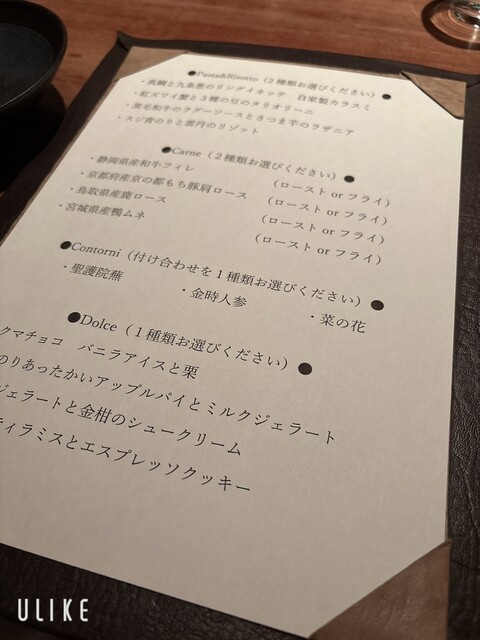 ●Pasta&Risotto（２種類お選びください）●
・真鯛と九条葱のリングイネッテ　自家製カラスミ
・紅ズワイ蟹と３種の豆のタリオリーニ
・黒毛和牛のラグーソースとさつま芋のラザニア
・スジ青のりと雲丹のリゾット
●Carne（２種類お選びください）●
・静岡県産和牛フィレ　（ロースト or フライ）
・京都府産京の都もち豚肩ロース　（ロースト or フライ）
・鳥取県産鹿ロース　（ロースト or フライ）
・宮城県産鴨ムネ　（ロースト or フライ）
●Contorni（付け合わせを１種類お選びください）●
・聖護院蕪　・金時人参　・菜の花
●Dolce（１種類お選びください）●
クマチョコ　バニラアイスと栗
のりあったかいアップルパイとミルクジェラート
ジェラートと金柑のシュークリーム
ティラミスとエスプレッソクッキー
ULIKE